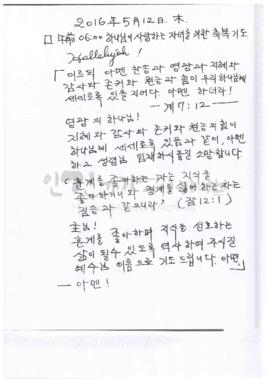 2016年 5月 12日. 木.
□ 午前 06:00 하나님의 사랑하는 자녀를 위한 축복기도
Hallelujah!
「이르되 아멘 찬송과 영광과 지혜와
감사와 존귀와 권능과 힘이 우리 하나님께
세세토록 있을지어다. 아멘 하더라!
── 계 7:12 ──
영광의 하나님!
지혜와 감사와 존귀와 권능의 힘이
하나님께 세세토록 있음과 같이, 아멘
하고 성령님 임재하시옵길 소망합니다
「훈계를 좋아하는 자는 지식을
좋아하거니와 징계를 싫어하는 자는
짐승과 같으니라」 (잠 12:1)
주님!
훈계를 좋아하며 지식을 선호하는
삶이 될 수 있도록 역사하여 주시길
예수님 이름으로 기도드립니다. 아멘」
─ 아멘!